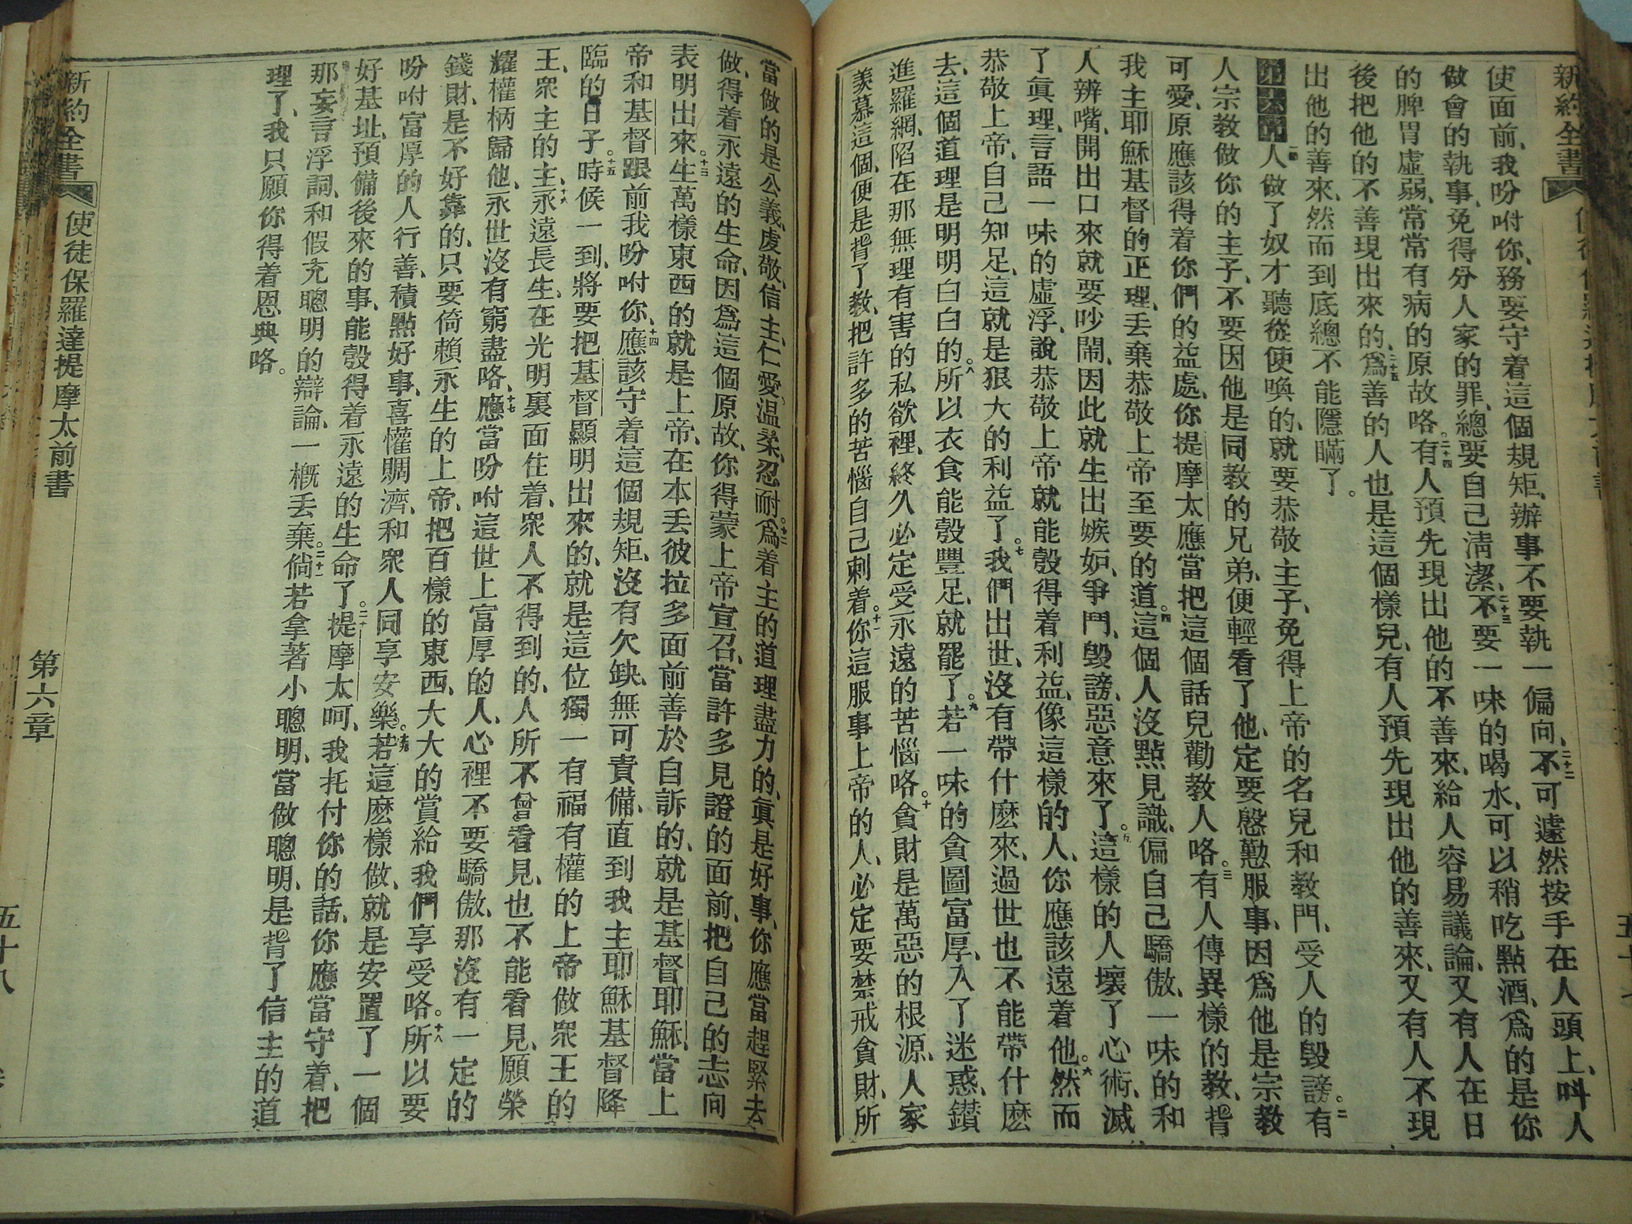 新約全書
使面前、我吩咐你、務要守着這個規矩、辦事不要執一偏向、二十二不可遽然按手在人頭上、呌人
做會的執事、免得分人家的罪、總要自己清潔、二十三不要一味的喝水、可以稍吃點酒、爲的是你
的脾胃虛弱、常常有病的原故咯。二十四有人預先現出他的不善來、給人容易議論、又有人在日
後把他的不善現出來的、二十五爲善的人也是這個樣兒、有人預先現出他的善來、又有人不現
出他的善來、然而到底總不能隱瞞了。
第六章 人做了奴才聽從使喚的、就要恭敬主子、免得上帝的名兒和教門、受人的毀謗。二有
人宗教做你的主子、不要因他是同教的兄弟、便輕看了他、定要慇懃服事、因爲他是宗教
可愛、原應該得着你們的益處、你提摩太應當把這個話兒勸教人咯。三有人傳異樣的教、揹
我主耶穌基督的正理、丢棄恭敬上帝至要的道。四這個人沒點見識、偏自己驕傲、一味的和
人辨嘴、開出口來就要吵鬧、因此就生出嫉妒、爭鬥、毀謗、惡意來了。五這樣的人壞了心術、滅
了眞理、言語一味的虛浮、說恭敬上帝就能彀得着利益、像這樣的人、你應該遠着他。六然而
恭敬上帝、自己知足、這就是狠大的利益了。七我們出世、沒有帶什麽來、過世也不能帶什麽
去、這個道理是明明白白的。八所以衣食能彀豐足、就罷了。九若一味的貪圖富厚、入了迷惑、鑽
進羅網、陷在那無理有害的私欲裡、終久必定受永遠的苦惱咯。十貪財是萬惡的根源、人家
羨慕這個、便是揹了教、把許多的苦惱自己刺着。十一你這服事上帝的人、必定要禁戒貪財、所
當做的是公義、虔敬、信主、仁愛、温柔、忍耐。十二爲着主的道理盡力的、眞是好事、你應當趕緊去
做、得着永遠的生命、因爲這個原故、你得蒙上帝宣召、當許多見證的面前、把自己的志向
表明出來。十三生萬樣東西的就是上帝、在本丢彼拉多面前善於自訴的、就是基督耶穌、當上
帝和基督跟前我吩咐你、十四應該守着這個規矩、沒有欠缺、無可責備、直到我主耶穌基督降
臨的日子。十五時候一到、將要把基督顯明出來的、就是這位獨一有福有權的上帝、做衆王的
王、衆主的主、十六永遠長生、在光明裏面住着、衆人不得到的、人所不曾看見、也不能看見、願榮
耀權柄歸他、永世沒有窮盡咯、十七應當吩咐這世上富厚的人、心裡不要驕傲、那沒有一定的
錢財、是不好靠的、只要倚賴永生的上帝、把百樣的東西、大大的賞給我們享受咯。十八所以要
吩咐富厚的人行善、積點好事、喜懽賙濟、和衆人同享安樂。十九若這麽樣做、就是安置了一個
好基址、預備後來的事、能彀得着永遠的生命了。二十提摩太呵、我托付你的話、你應當守着、把
那妄言浮詞、和假充聰明的辯論、一槪丢棄。二十一倘若拿著小聰明、當做聰明、是揹了信主的道
理了、我只願你得着恩典咯。
新約全書 使徒保羅達提摩太前書 第六章 五十八